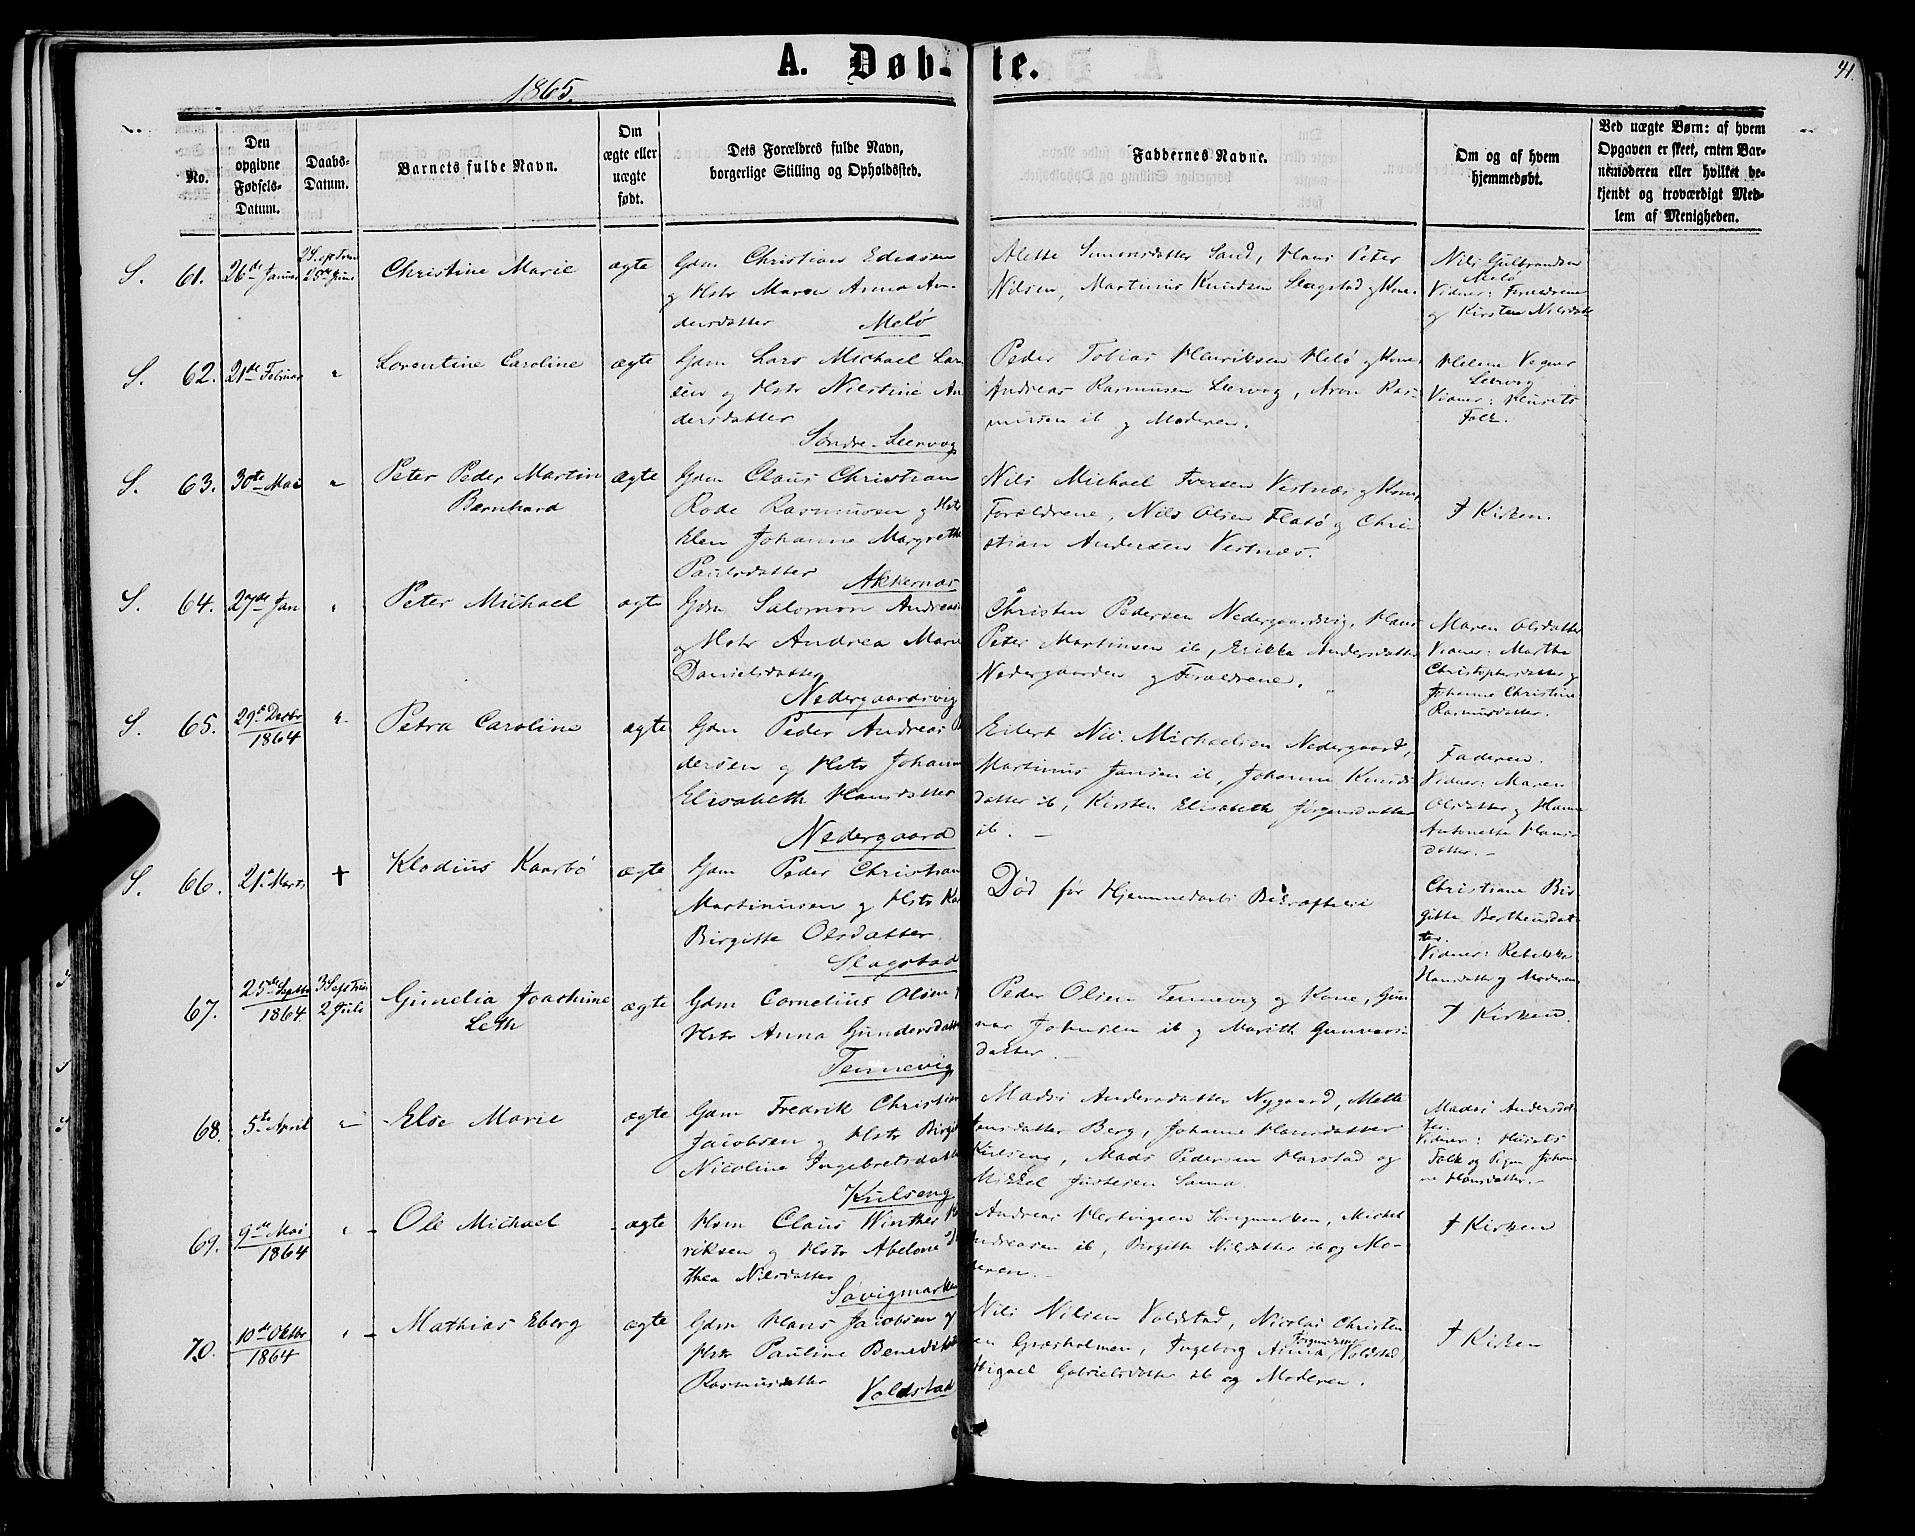 A. Døbte.
41.
1865.
No.
Den opgivne Fødsels-Datum.
Daabs-Datum.
Barnets fulde Navn.
Om ægte eller uægte født.
Dets Forældres fulde Navn, borgerlige Stilling og Opholdssted.
Faddernes Navne.
Om og af hvem hjemmedøbt.
Ved uægte Børn: af hvem Opgaven er skeet, enten Barnemoderen eller hvilket bekjendt og troværdigt Medlem af Menigheden.
S. 61. 26de Januar
Christine Marie
ægte
Gdm Christian
g Hstr Maren Anna An-
dersdatter Melø
Alette Simonsdatter Sand, Hans Peter
Nilsen, Martinus Knudsen Slagstad g Kone
Nils Gulbrandsen
Melø
Vidner: Forældrene
og Kirsten Nilsdatt
S. 62. 21de Februar "
Lorentine Caroline
ægte
Gdm Lars Michael Lar
sen og Hstr Nilstine An
dersdatter
Søndre-Leervog
Peder Tobias Henriksen Melø g Kone
Andreas Rasmussen Leervog, Aron Ras-
mussen ib g Moderen.
Helene
Leervog
Vidner: Husets
Folk.
S. 63. 30te Mai "
Peter Peder Martin
Bernhard
ægte
Gdm Claus Christian
Rode Rasmussen g Hstr
Elen Johanne Margrethe
Paulsdatter Akkernæs
Nils Michael Iversen Vestnæs g Kone,
Forældrene, Nils Olsen Flatø g Chri-
stian Andersen Vestnæs.
I Kirken.
S. 64. 27de Jan "
Peter Michael
ægte
Gdm Salomon Andreas
g Hstr Andrea Marie
Danielsdatter
Nedergaardsvig
Christen Pedersen Nedergaardsvig, Hans
Peter Martinsen ib, Erikka Andersdatter
Nedergaarden g Forældrene.
Maren Olsdatter
Vidner: Martha
Christophersdatter g
Johanne Christine
Rasmusdatter.
S. 65. 29de Decbr 1864 "
Petra Caroline
ægte
Gdm Peder Andreas
dersen g Hstr Johann
Elisabeth Hansdatter
Nedergaard
Eilert Nic. Michaelsen Nedergaard,
Martinus Jansen ib, Johanne Knuds
datter ib, Kirsten Elisabeth Jørgensdatter
ib. —
Faderen.
Vidner: Maren
Olsdatter g Hanna
Antonette Hans-
datter. —
S. 66. 21de Marts †
Klodius Kaarbø
ægte
Gdm Peder Christian
Martinusen g Hstr
Birgitte Olsdatter.
Slagstad
Død før Hjemmedaabs Bekræftelse
Christiane Bir
gitte Bertheusdat-
ter.
Vidner: Rebekka
Hansdatter g Moderen
67. 25de Septbr 1864 2 Juli
Gunelia Joachime
Leth
ægte
Gdm Cornelius Olsen
Hstr Anna Gundersdatt
Tennevig
Peder Olsen Tennevig og Kone, Gun
nar Johnsen ib g Marith Gunnars-
datter. —
I Kirken.
68. 5te April "
Else Marie
ægte
Gdm Fredrik Christian
Jacobsen g Hstr Birgit
Nicoline Ingebretsdatt
Kulseng
Madsi Andersdatter Nygaard, Mette
Hansdatter Berg, Johanne Hansdatter
Kulseng, Mads Pedersen Harstad og
Mikkel Justesen Sama.
Madsi Andersdat-
ter.
Vidner: Husets
Folk og Pigen Johan
ne Hansdatter. —
69. 9de Mai 1864 "
Ole Michael
ægte
Hsm Claus Winther
riksen g Hstr Abelone
thea Nilsdatter
Søvigmarken
Andreas Hertvigsen Søvigmarken, Mikkel
Andreasen ib, Birgitte Nilsdatter ib og Mo-
deren. —
I Kirken
70. 10de Oktbr 1864 "
Mathias Eberg
ægte
Gdm Hans Jacobsen g
Hstr Pauline Benedikte
Rasmusdatter Voldstad
Nils Nilsen Voldstad, Nicolai Christen
sen Græsholmen, Ingeborg Anna Voldstad,
Abigael Gabrielsdatter ib og Moderen.
I Kirken